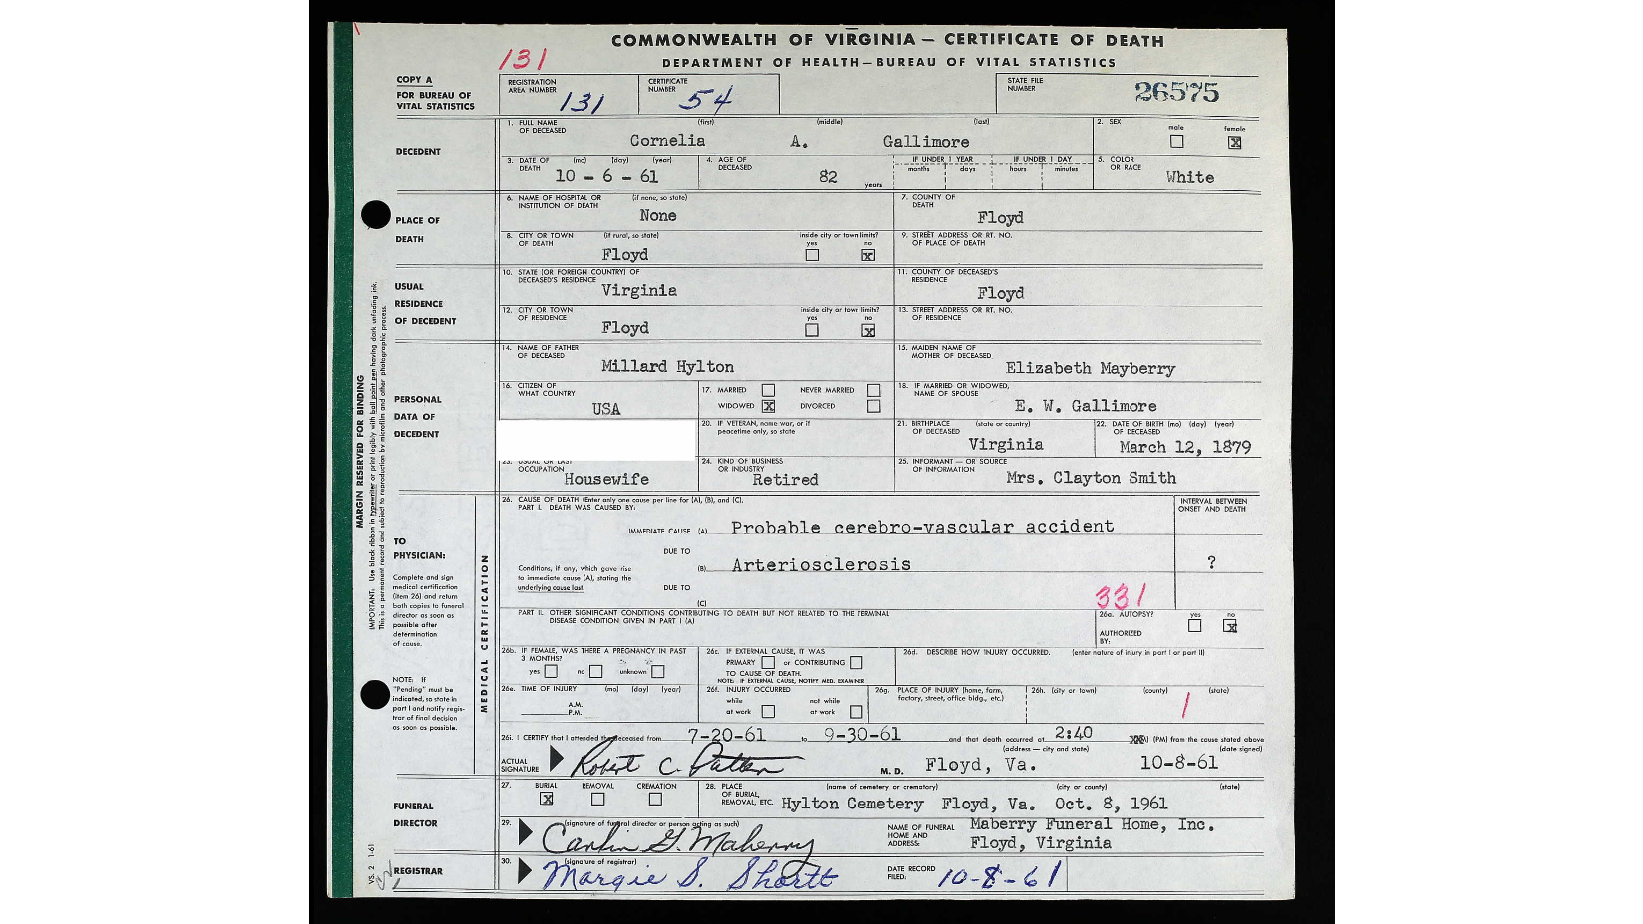 COMMONWEALTH OF VIRGINIA — CERTIFICATE OF DEATH
DEPARTMENT OF HEALTH—BUREAU OF VITAL STATISTICS
131
COPY A
FOR BUREAU OF
VITAL STATISTICS
REGISTRATION AREA NUMBER 131
CERTIFICATE NUMBER 54
STATE FILE NUMBER 26575
DECEDENT
1. FULL NAME OF DECEASED (first) (middle) (last)
Cornelia A. Gallimore
2. SEX male female X
3. DATE OF DEATH (mo) (day) (year)
10 - 6 - 61
4. AGE OF DECEASED 82 years
IF UNDER 1 YEAR months days
IF UNDER 1 DAY hours minutes
5. COLOR OR RACE White
PLACE OF
DEATH
6. NAME OF HOSPITAL OR INSTITUTION OF DEATH (if none, so state)
None
7. COUNTY OF DEATH
Floyd
8. CITY OR TOWN OF DEATH (if rural, so state)
Floyd
inside city or town limits? yes no X
9. STREET ADDRESS OR RT. NO. OF PLACE OF DEATH
USUAL
RESIDENCE
OF DECEDENT
10. STATE (OR FOREIGN COUNTRY) OF DECEASED'S RESIDENCE
Virginia
11. COUNTY OF DECEASED'S RESIDENCE
Floyd
12. CITY OR TOWN OF RESIDENCE
Floyd
inside city or town limits? yes no X
13. STREET ADDRESS OR RT. NO. OF RESIDENCE
PERSONAL
DATA OF
DECEDENT
14. NAME OF FATHER OF DECEASED
Millard Hylton
15. MAIDEN NAME OF MOTHER OF DECEASED
Elizabeth Mayberry
16. CITIZEN OF WHAT COUNTRY
USA
17. MARRIED NEVER MARRIED
WIDOWED X DIVORCED
18. IF MARRIED OR WIDOWED, NAME OF SPOUSE
E. W. Gallimore
20. IF VETERAN, name war, or if peacetime only, so state
21. BIRTHPLACE OF DECEASED (state or country)
Virginia
22. DATE OF BIRTH (mo) (day) (year) OF DECEASED
March 12, 1879
23. USUAL OR LAST OCCUPATION
Housewife
24. KIND OF BUSINESS OR INDUSTRY
Retired
25. INFORMANT — OR SOURCE OF INFORMATION
Mrs. Clayton Smith
MARGIN RESERVED FOR BINDING
IMPORTANT: Use black ribbon in typewriter or print legibly with ball point pen having dark unfading ink.
This is a permanent record and subject to reproduction by microfilm and other photographic process.
TO
PHYSICIAN:
Complete and sign
medical certification
(item 26) and return
both copies to funeral
director as soon as
possible after
determination
of cause.
NOTE: If
"Pending" must be
indicated, so state in
part I and notify regis-
trar of final decision
as soon as possible.
MEDICAL CERTIFICATION
26. CAUSE OF DEATH (Enter only one cause per line for (A), (B), and (C).
PART I. DEATH WAS CAUSED BY:
INTERVAL BETWEEN ONSET AND DEATH
IMMEDIATE CAUSE (A) Probable cerebro-vascular accident
DUE TO
Conditions, if any, which gave rise
to immediate cause (A), stating the
underlying cause last
(B) Arteriosclerosis ?
DUE TO
(C)
331
PART II. OTHER SIGNIFICANT CONDITIONS CONTRIBUTING TO DEATH BUT NOT RELATED TO THE TERMINAL
DISEASE CONDITION GIVEN IN PART I (A)
26a. AUTOPSY? yes no X
AUTHORIZED BY:
26b. IF FEMALE, WAS THERE A PREGNANCY IN PAST 3 MONTHS?
yes no unknown
26c. IF EXTERNAL CAUSE, IT WAS
PRIMARY or CONTRIBUTING
TO CAUSE OF DEATH.
NOTE: IF EXTERNAL CAUSE, NOTIFY MED. EXAMINER
26d. DESCRIBE HOW INJURY OCCURRED. (enter nature of injury in part I or part II)
26e. TIME OF INJURY (mo) (day) (year)
A.M.
P.M.
26f. INJURY OCCURRED
while at work not while at work
26g. PLACE OF INJURY (home, farm, factory, street, office bldg., etc.)
26h. (city or town) (county) (state)
26i. I CERTIFY that I attended the deceased from 7-20-61 to 9-30-61 and that death occurred at 2:40 (PM) from the cause stated above
(address — city and state) (date signed)
ACTUAL SIGNATURE Robert C. Patton M. D. Floyd, Va. 10-8-61
FUNERAL
DIRECTOR
27. BURIAL X REMOVAL CREMATION
28. PLACE OF BURIAL, REMOVAL, ETC. (name of cemetery or crematory) (city or county) (state)
Hylton Cemetery Floyd, Va. Oct. 8, 1961
29. (signature of funeral director or person acting as such)
Carlin G. Maberry
NAME OF FUNERAL HOME AND ADDRESS:
Maberry Funeral Home, Inc.
Floyd, Virginia
REGISTRAR
30. (signature of registrar)
Margie S. Shortt
DATE RECORD FILED: 10-8-61
VS. 2 1-61